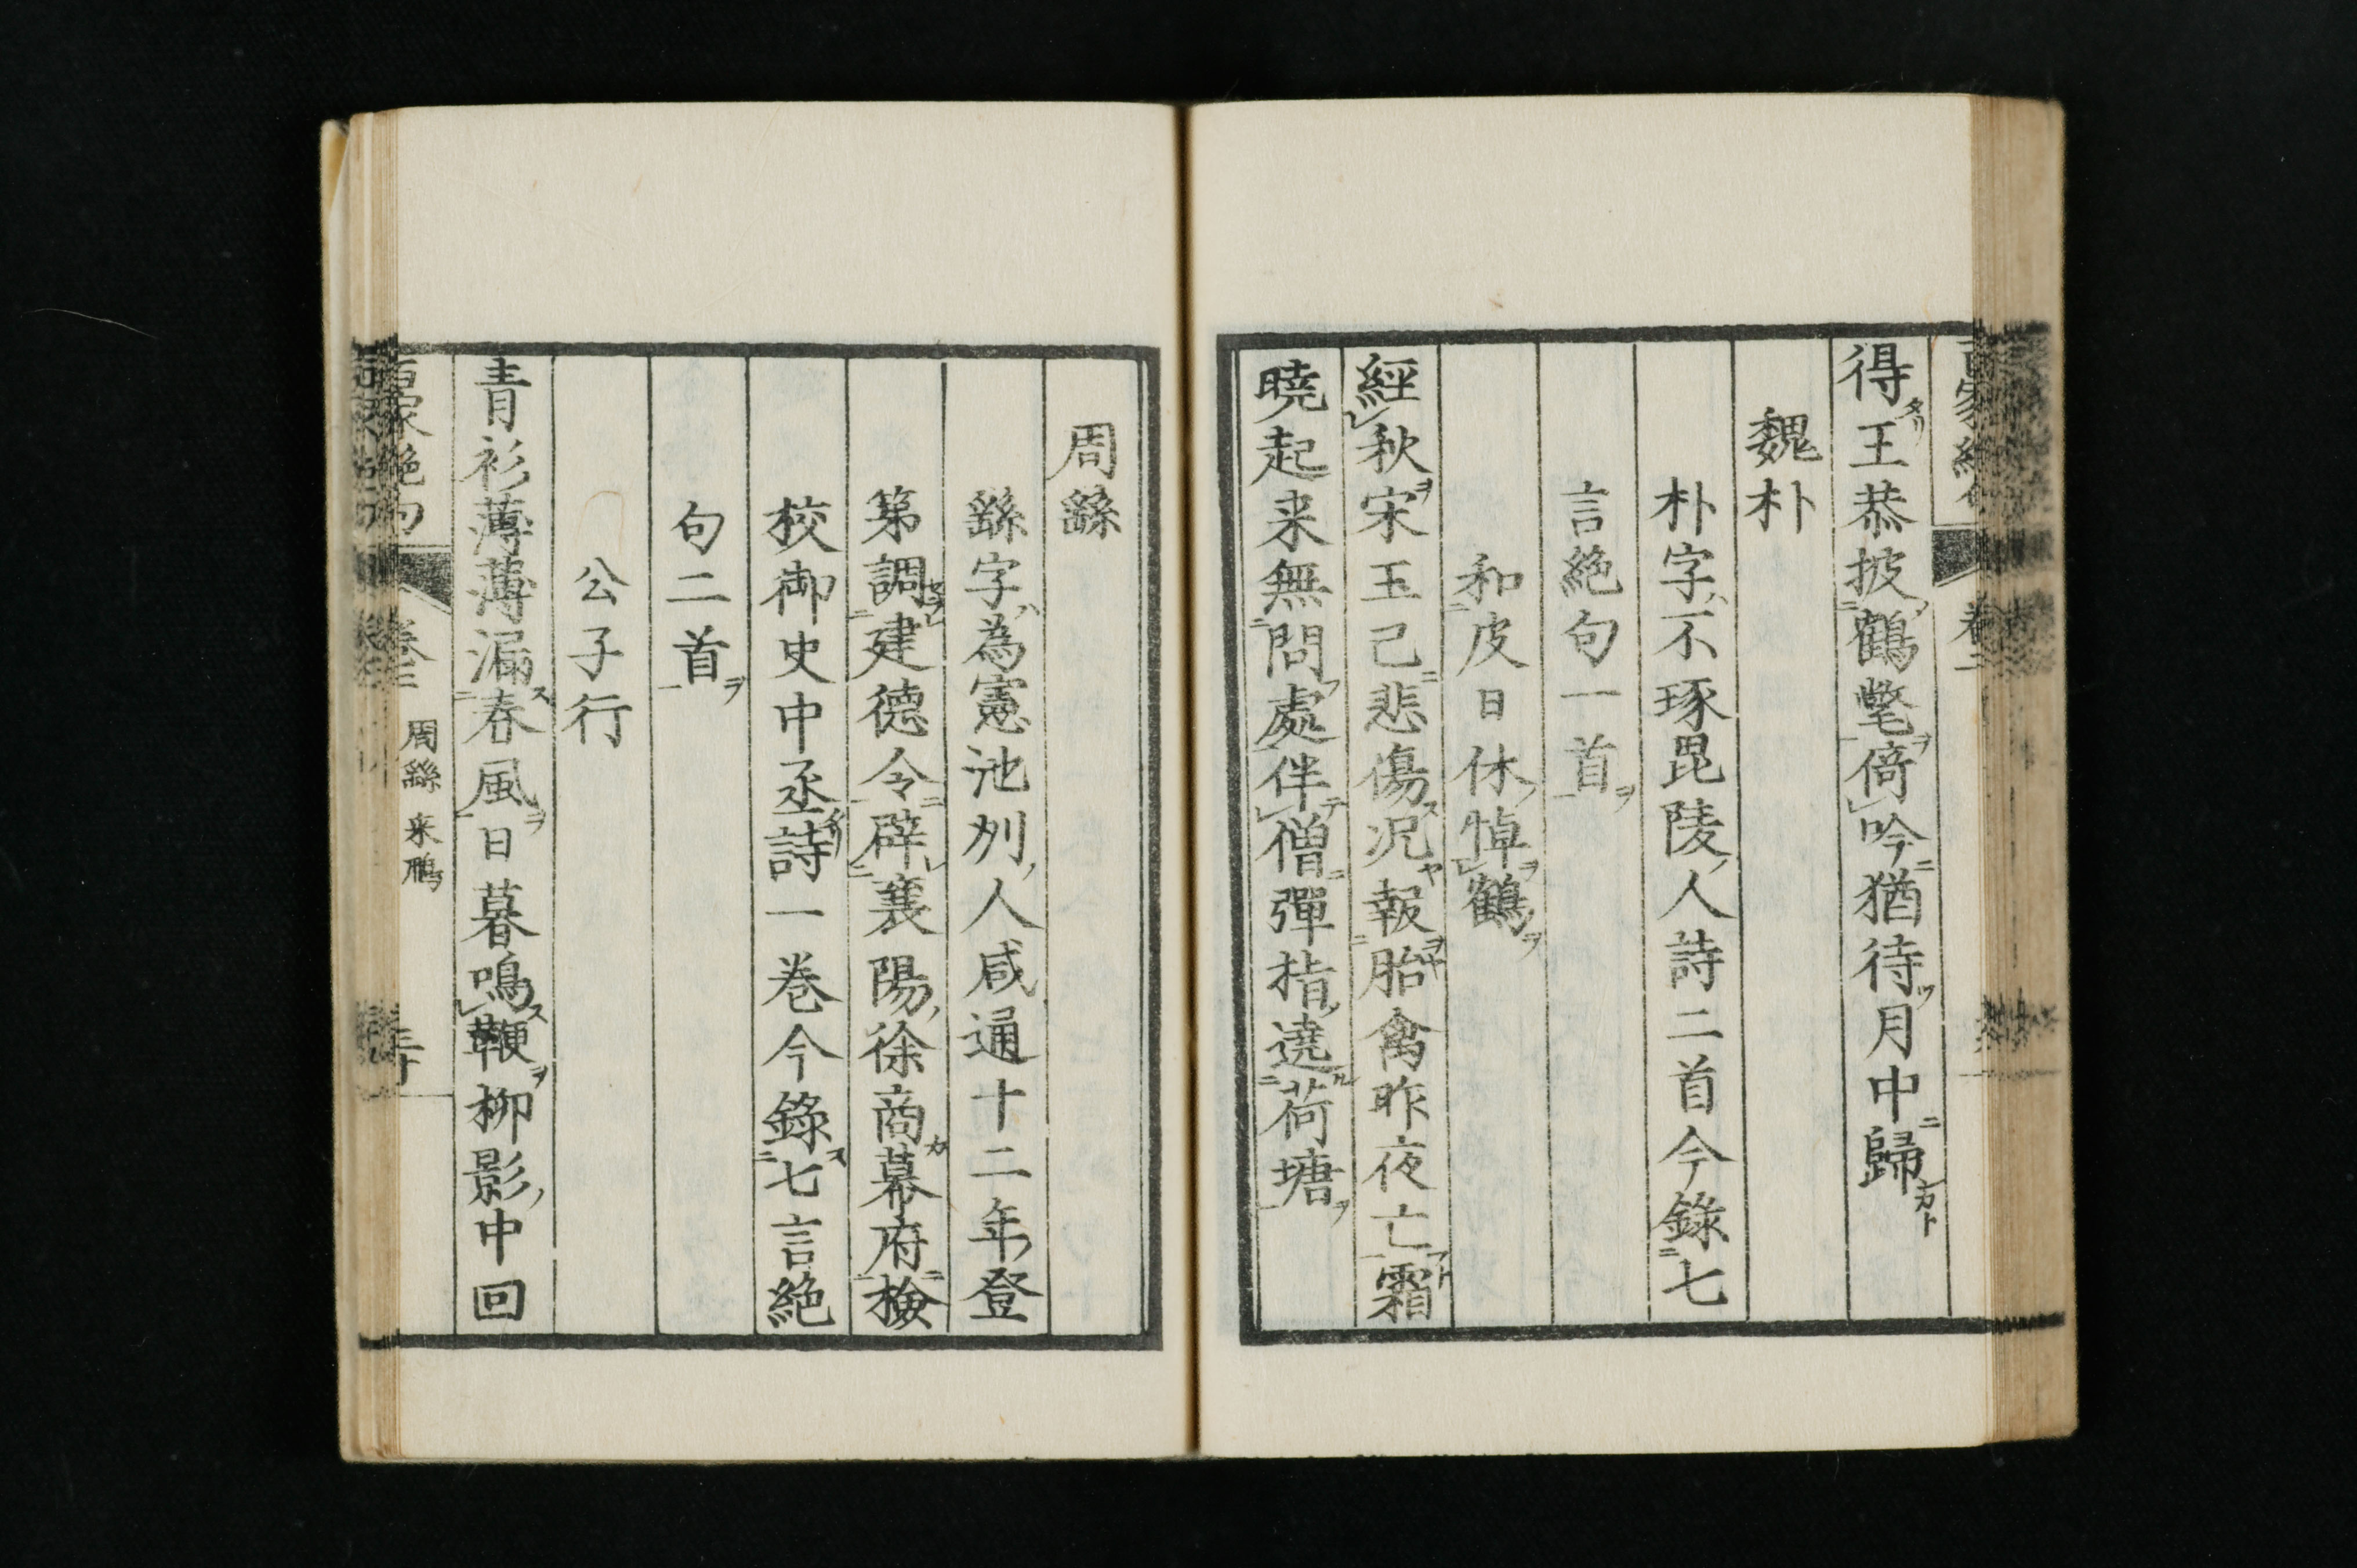 得王恭披鶴氅倚吟猶待月中歸
魏朴
朴字不琢毘陵人詩二首今錄七
言絕句一首
和皮日休悼鶴
經秋宋玉己悲傷况報胎禽昨夜亡霜
曉起来無問處伴僧彈指遶荷塘
周繇
繇字為憲池州人咸通十二年登
第調建德令辟襄陽徐商幕府檢
校御史中丞詩一卷今錄七言絕
句二首
公子行
青衫薄薄漏春風日暮鳴鞭柳影中回
百家絕句
卷三
周繇 来鵬
三十